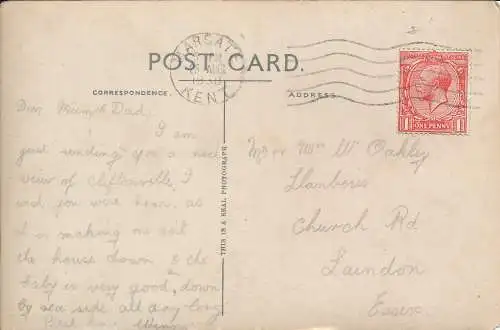 POST CARD.
MARGATE
AUG
1930
KENT
CORRESPONDENCE.
ADDRESS
ONE PENNY
THIS IS A REAL PHOTOGRAPH
Dear Mum & Dad,
I am
just sending you a nice
view of Cliftonville, I
wish you were here, as
it is making me
the house down & the
baby is very good, down
by sea side all day long
Best love
Mr & Mrs W Oakley
Llanberis
Church Rd
Laindon
Essex